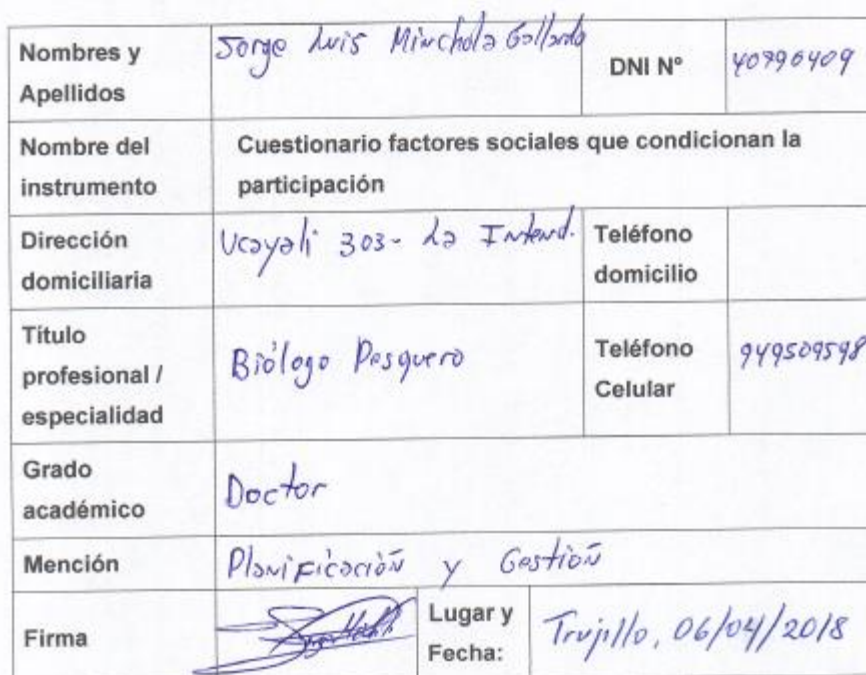 Nombres y Apellidos Jorge Luis Minchola Gallardo DNI N° 40796409
Nombre del instrumento Cuestionario factores sociales que condicionan la participación
Dirección domiciliaria Ucayali 303- La Intend. Teléfono domicilio
Título profesional / especialidad Biólogo Pesquero Teléfono Celular 949509598
Grado académico Doctor
Mención Planificación y Gestión
Firma Lugar y Fecha: Trujillo, 06/04/2018